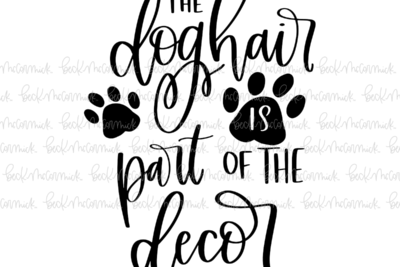 THE
doghair
IS
part OF THE
decor